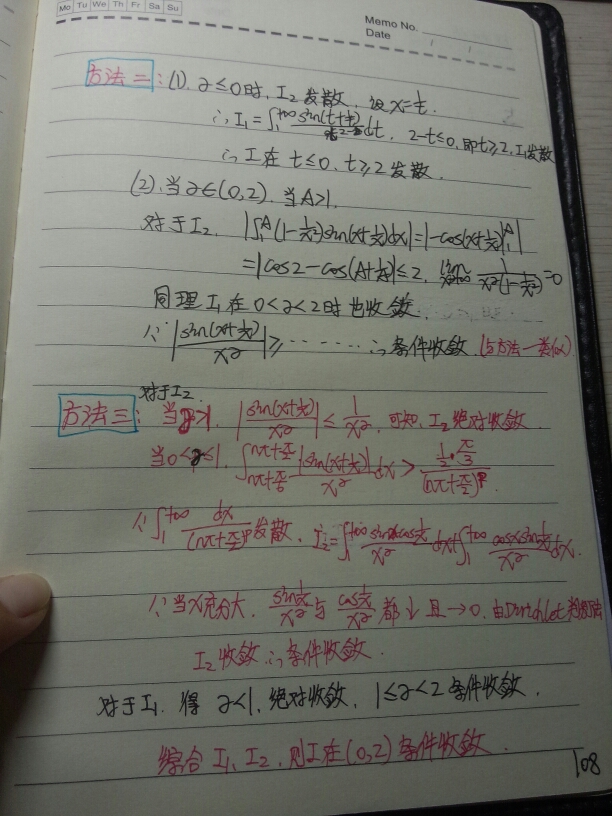 Mo Tu We Th Fr Sa Su
Memo No.
Date / /
方法二: (1). 2≤0时, I₂发散, 设x=1/t.
∴ I₁=∫₁^{+∞} sin(t+1/t)/t^{2-2} dt, 2-t≤0, 即t≥2, I₁发散
∴ I在 t≤0, t≥2 发散.
(2). 当2∈(0,2), 当A>1.
对于I₂. |∫₁^A (1-1/x²)sin(x+1/x)dx|=|-cos(x+1/x)|₁^A|
=|cos2-cos(A+1/A)|≤2, lim_{x→+∞} 1/(x²(1-1/x²))=0
同理 I₁在0<2<2时也收敛.
∵ |sin(x+1/x)/x²|≥ ······ ∴条件收敛 (与方法一类似)
对于I₂.
方法三: 当2>1, |sin(x+1/x)/x²|≤1/x², 可知, I₂绝对收敛
当0<2≤1, ∫_{nπ+π/6}^{nπ+π/2} |sin(x+1/x)|/x² dx > (1/2·π/3)/(nπ+π/2)^2.
∵ ∫₁^{+∞} dx/(nπ+π/2)^2 发散, I₂=∫₁^{+∞} sinxcos1/x / x² dx+∫₁^{+∞} cosxsin1/x / x² dx.
∵ 当x充分大, sin1/x / x² 与 cos1/x / x² 都↓且→0. 由Dirichlet判别法
I₂收敛∴条件收敛.
对于I₁, 得 2<1, 绝对收敛, 1≤2<2 条件收敛.
综合 I₁、I₂, 则I在(0,2)条件收敛.
108